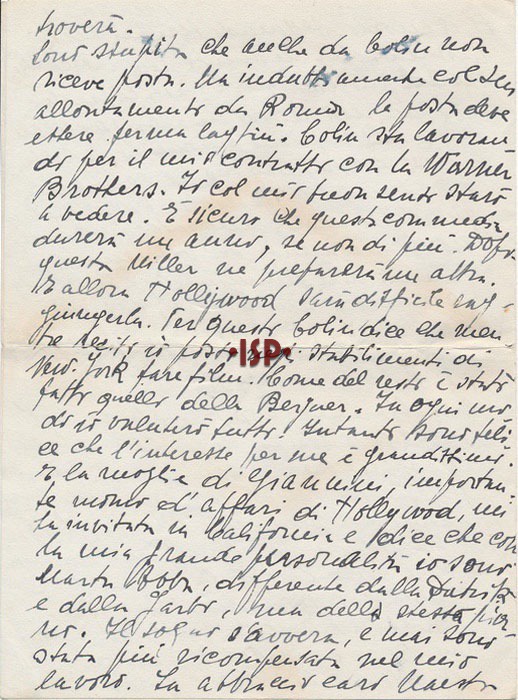 troverà.
Sono stupita che anche da Colin non
riceve posta. Ma indubbiamente col Suo
allontamento da Roma la posta deve
essere ferma laggiù. Colin sta lavoran
do per il mio contratto con la Warner
Brothers. Io col mio buon senso starò
a vedere. È sicuro che questa commedia
durerà un anno, se non di più. Dopo
questa Miller ne preparerà un altra.
E allora Hollywood sarà difficile rag-
giungerla. Per questo Colin dice che men
tre recito io posso negli stabilimenti di
New-York fare film. Come del resto è stato
fatto quello della Bergner. In ogni mo
do io valuterò tutto. Intanto sono feli
ce che l'interesse per me è grandissimo.
E la moglie di Giannini, importan
te mondo d'affari di Hollywood, mi
ha invitata in California e dice che con
la mia grande personalità io sono
Marta Abba, differente dalla Dietrich
e dalla Garbo, ma dello stesso pia
no. Il sogno s'avvera, e mai sono
stata più ricompensata nel mio
lavoro. La abbraccio caro Maestro
ISP